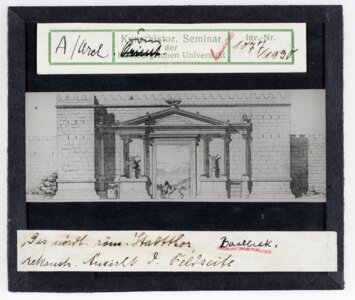 Kunsthistor. Seminar
A/Arch. der
Universität
Inv.-Nr.
1077
1930
Das nördl. röm. Stadttor, Baalbek.
rekonstr. Ansicht d. Feldseite